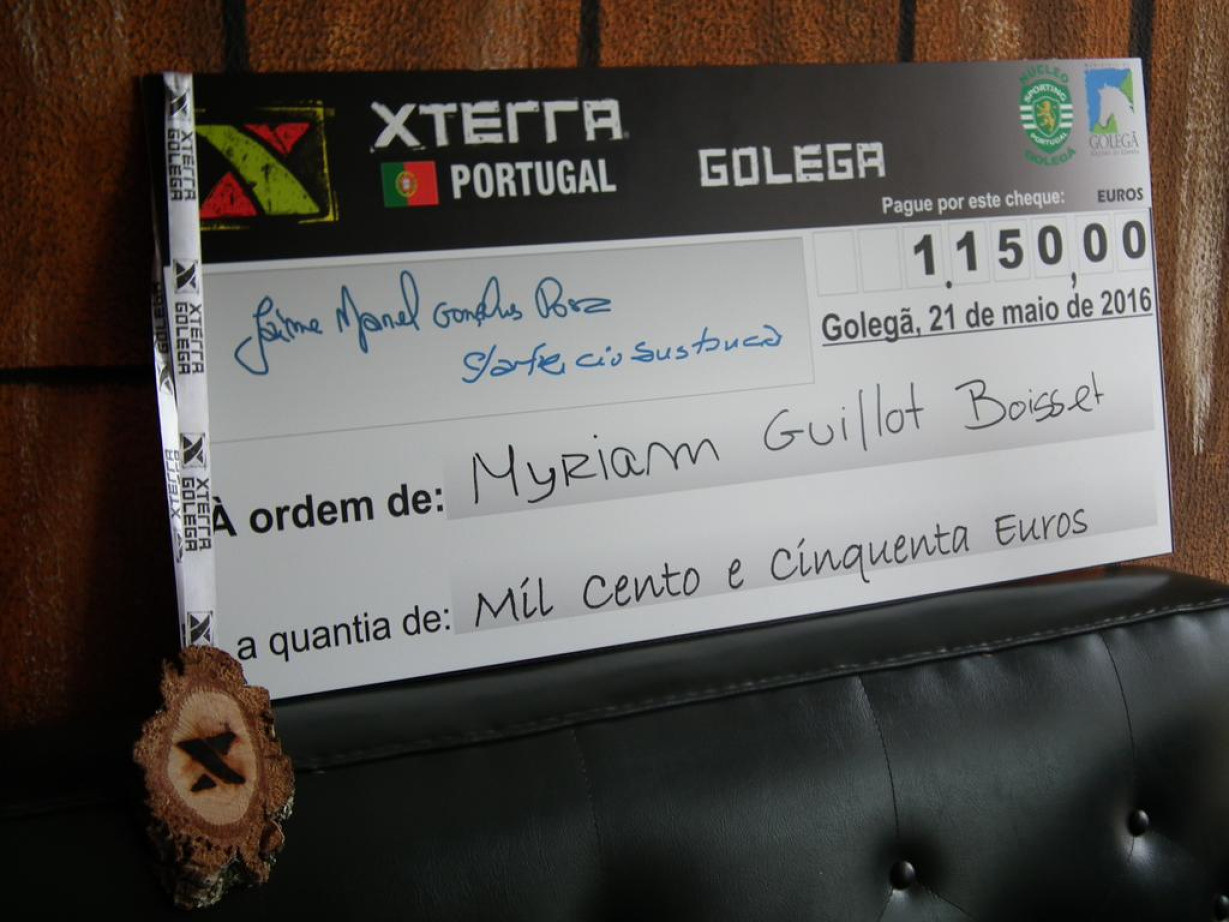 XTERRA
PORTUGAL
GOLEGA
NÚCLEO
SPORTING
PORTUGAL
GOLEGÃ
GOLEGÃ
Pague por este cheque: EUROS
1.150,00
Golegã, 21 de maio de 2016
Jaime Manel
À ordem de: Myriam Guillot Boisset
a quantia de: Mil Cento e Cinquenta Euros
XTERRA GOLEGA
XTERRA GOLEGA
XTERRA GOLEGA